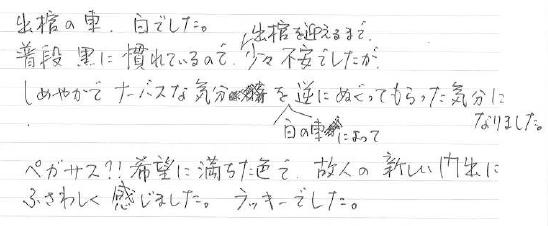 出棺の車、白でした。
出棺を迎えるまで、
普段 黒に慣れているので、少々不安でしたが
しめやかで ナーバスな気分を逆にぬぐってもらった気分に
なりました。
白の車によって
ペガサス?!希望に満ちた色で、故人の新しい門出に
ふさわしく感じました。ラッキーでした。